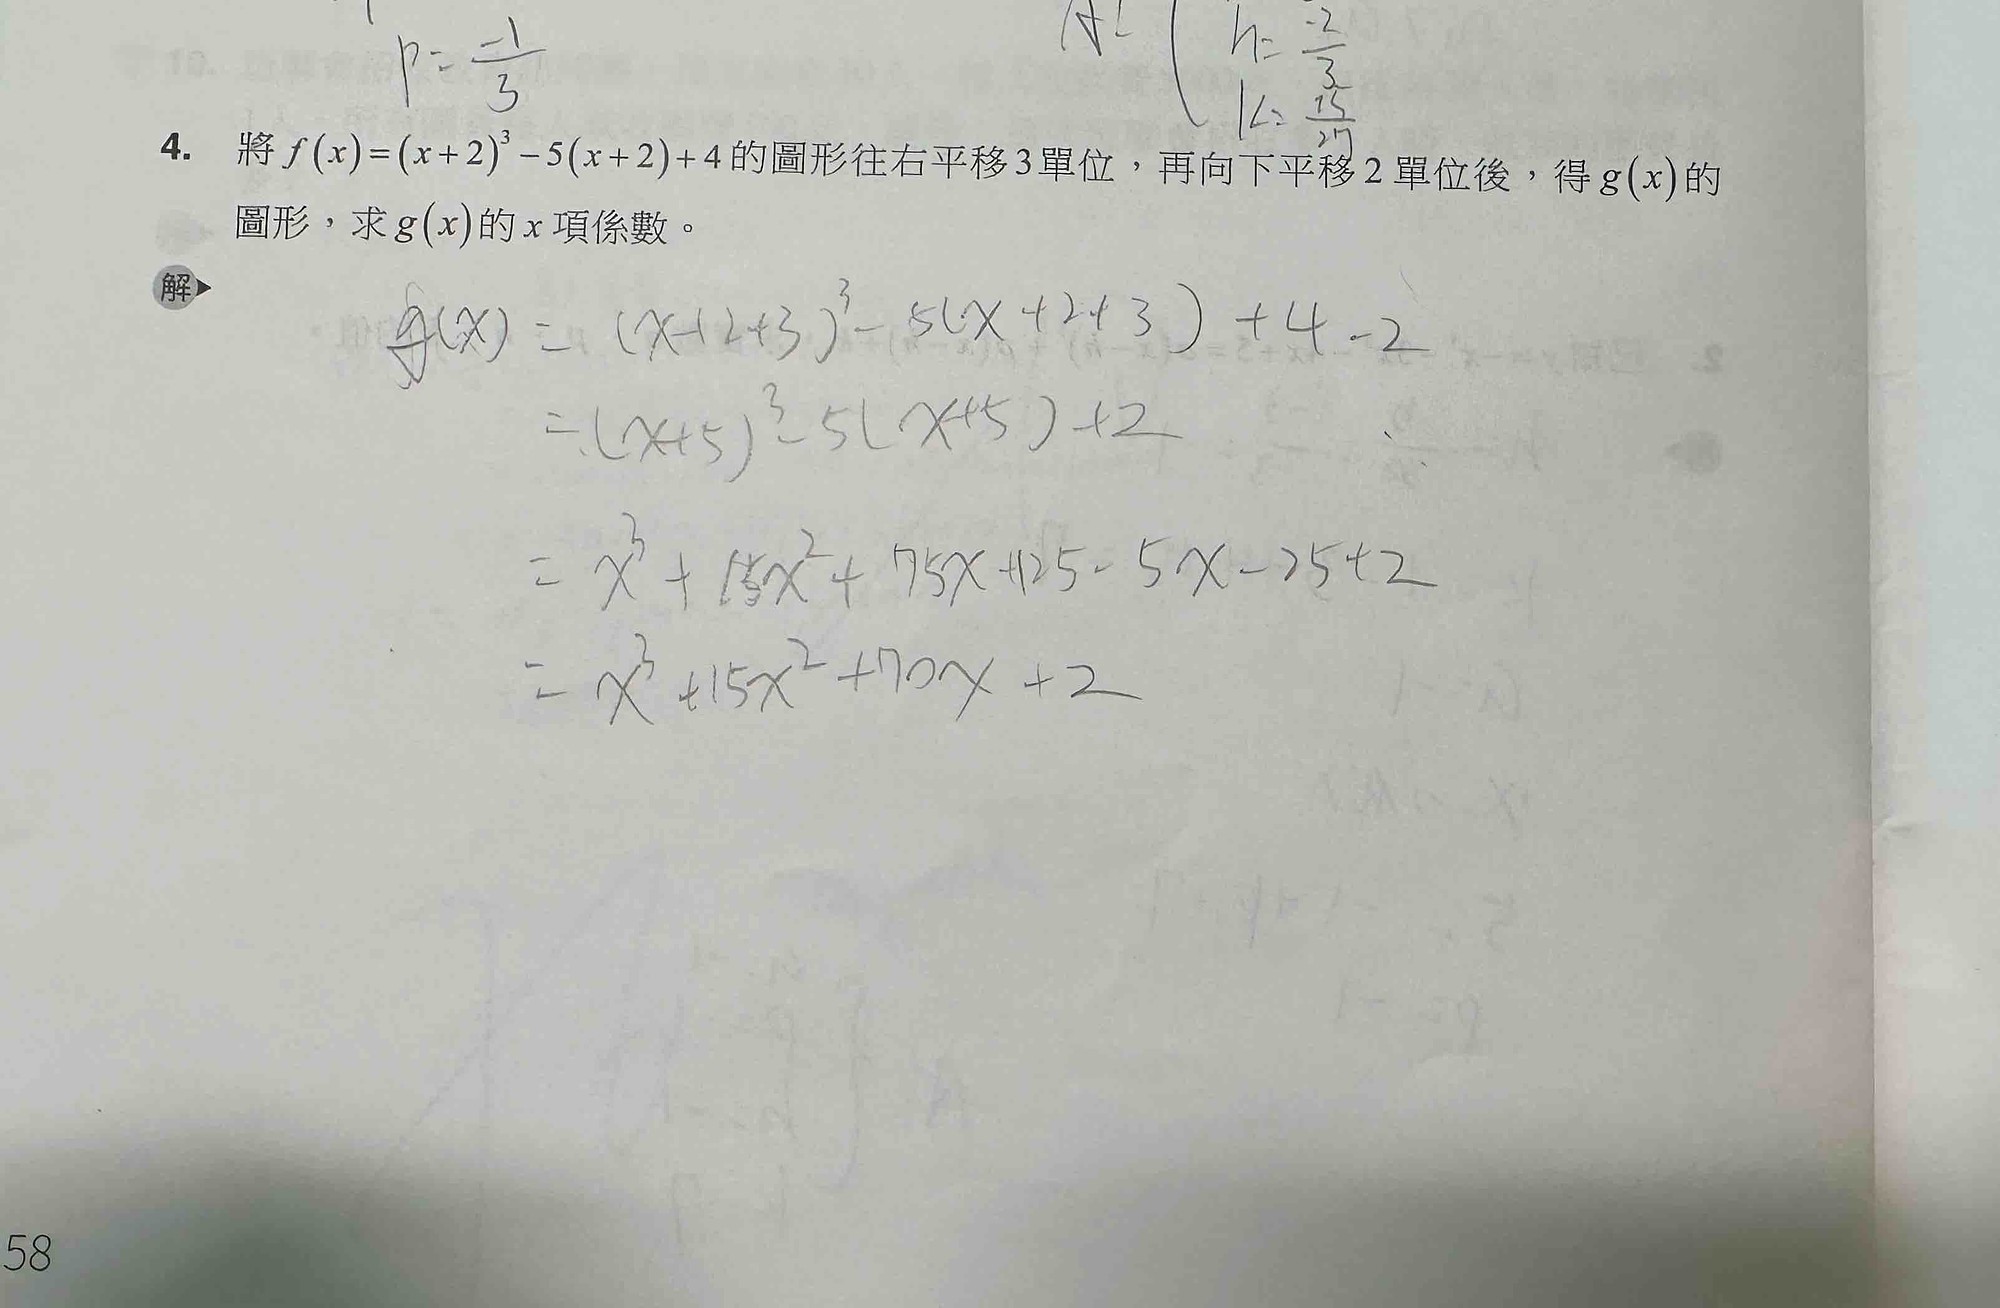 p = -1/3
h = -2/3
k = 15/27
4. 將 f(x)=(x+2)³−5(x+2)+4 的圖形往右平移3單位，再向下平移 2 單位後，得 g(x) 的
圖形，求 g(x) 的 x 項係數。
解
g(x) = (x+2+3)³ - 5(x+2+3) + 4 - 2
= (x+5)³ - 5(x+5) + 2
= x³ + 15x² + 75x + 125 - 5x - 25 + 2
= x³ + 15x² + 70x + 2
58